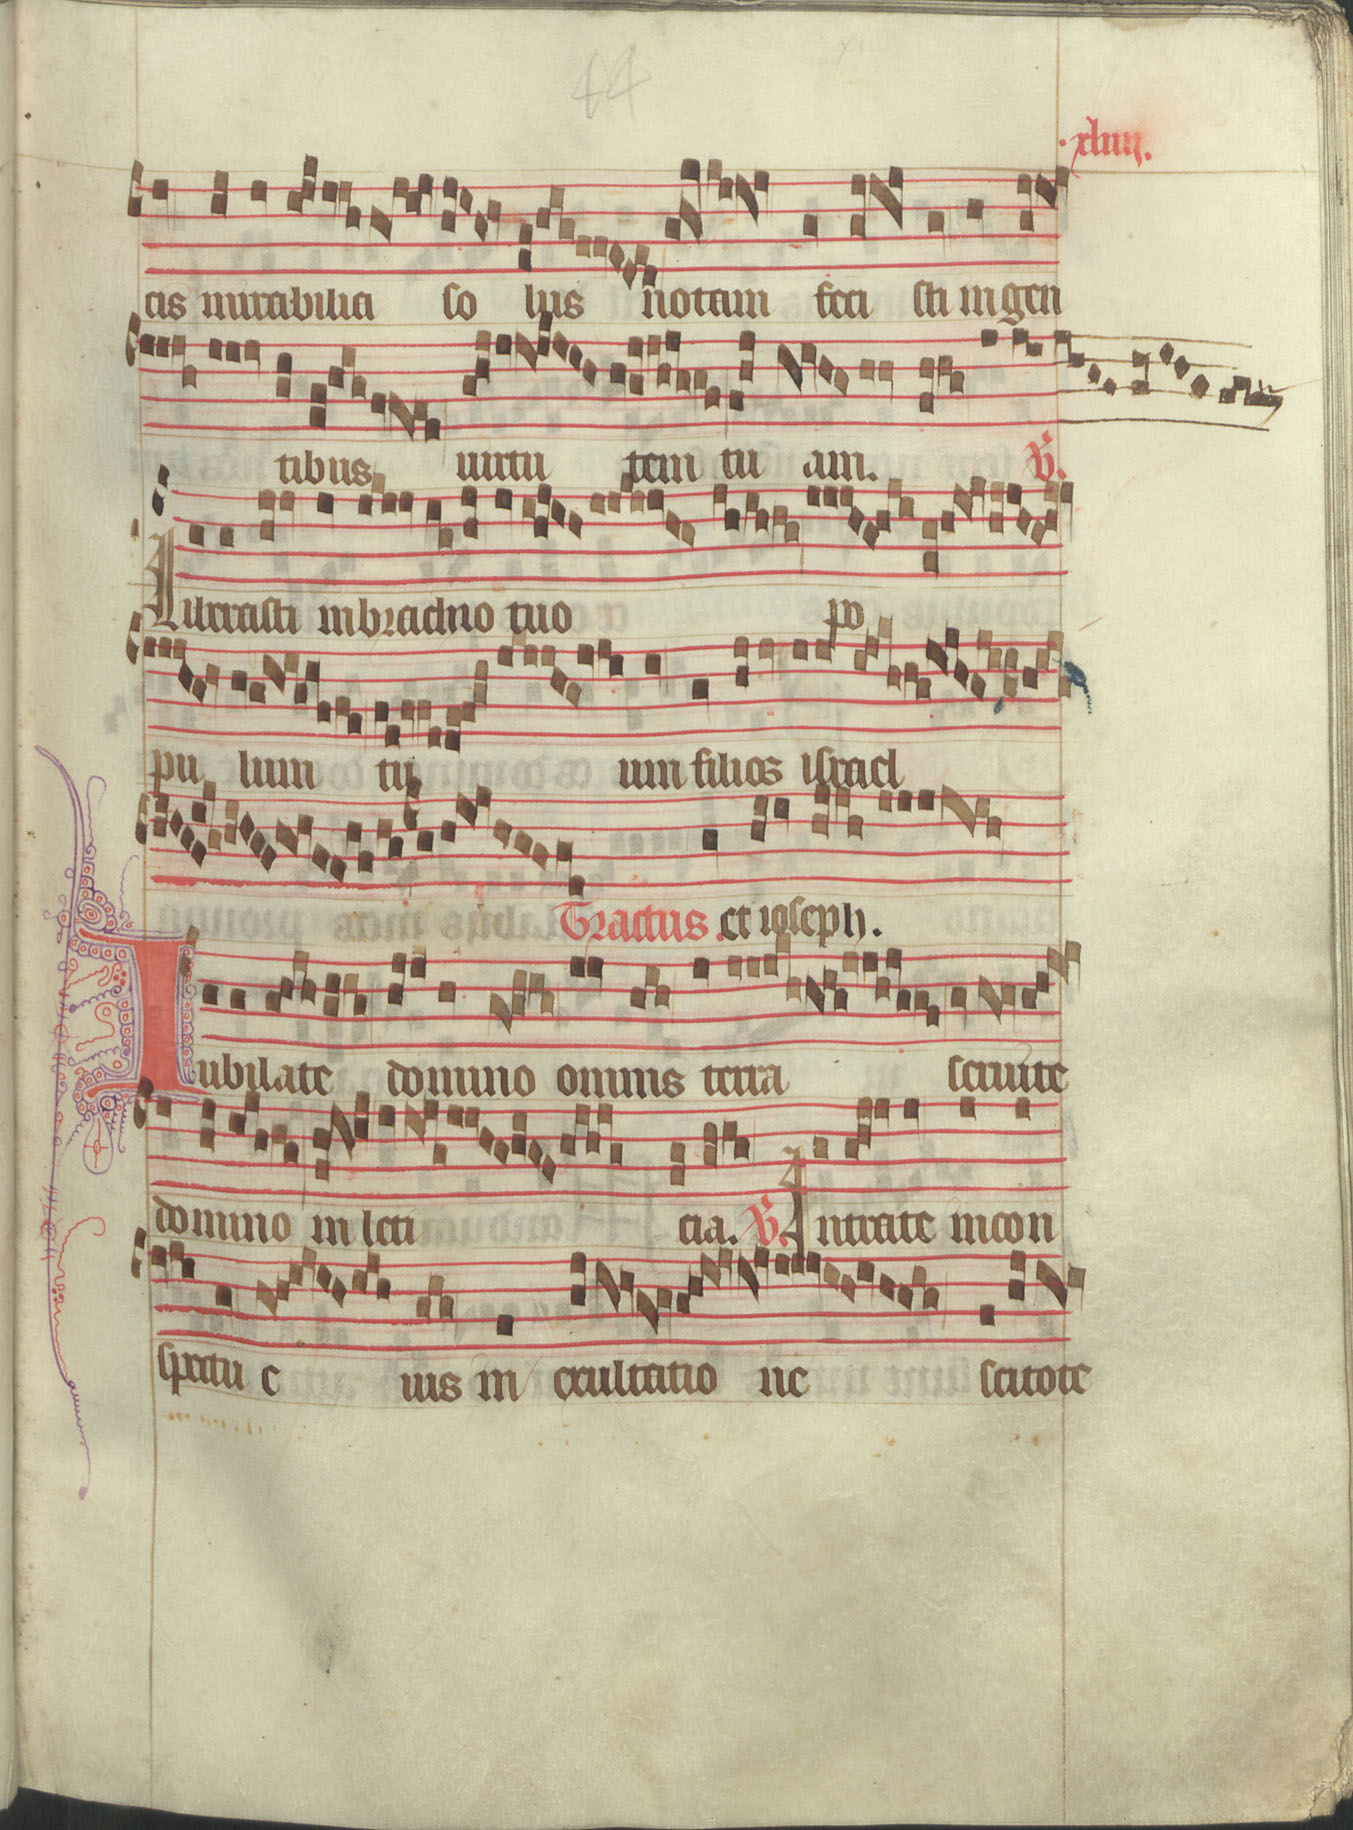 44
.xliiii.
cis mirabilia so lus notam feci sti in gen
tibus uirtu tem tu am. V.
Liberasti in brachio tuo po
pu lum tu um filios israel
Tractus. et ioseph.
Iubilate domino omnis terra seruite
domino in leti cia. V. Intrate in con
spectu e ius in exultatio ne scitote